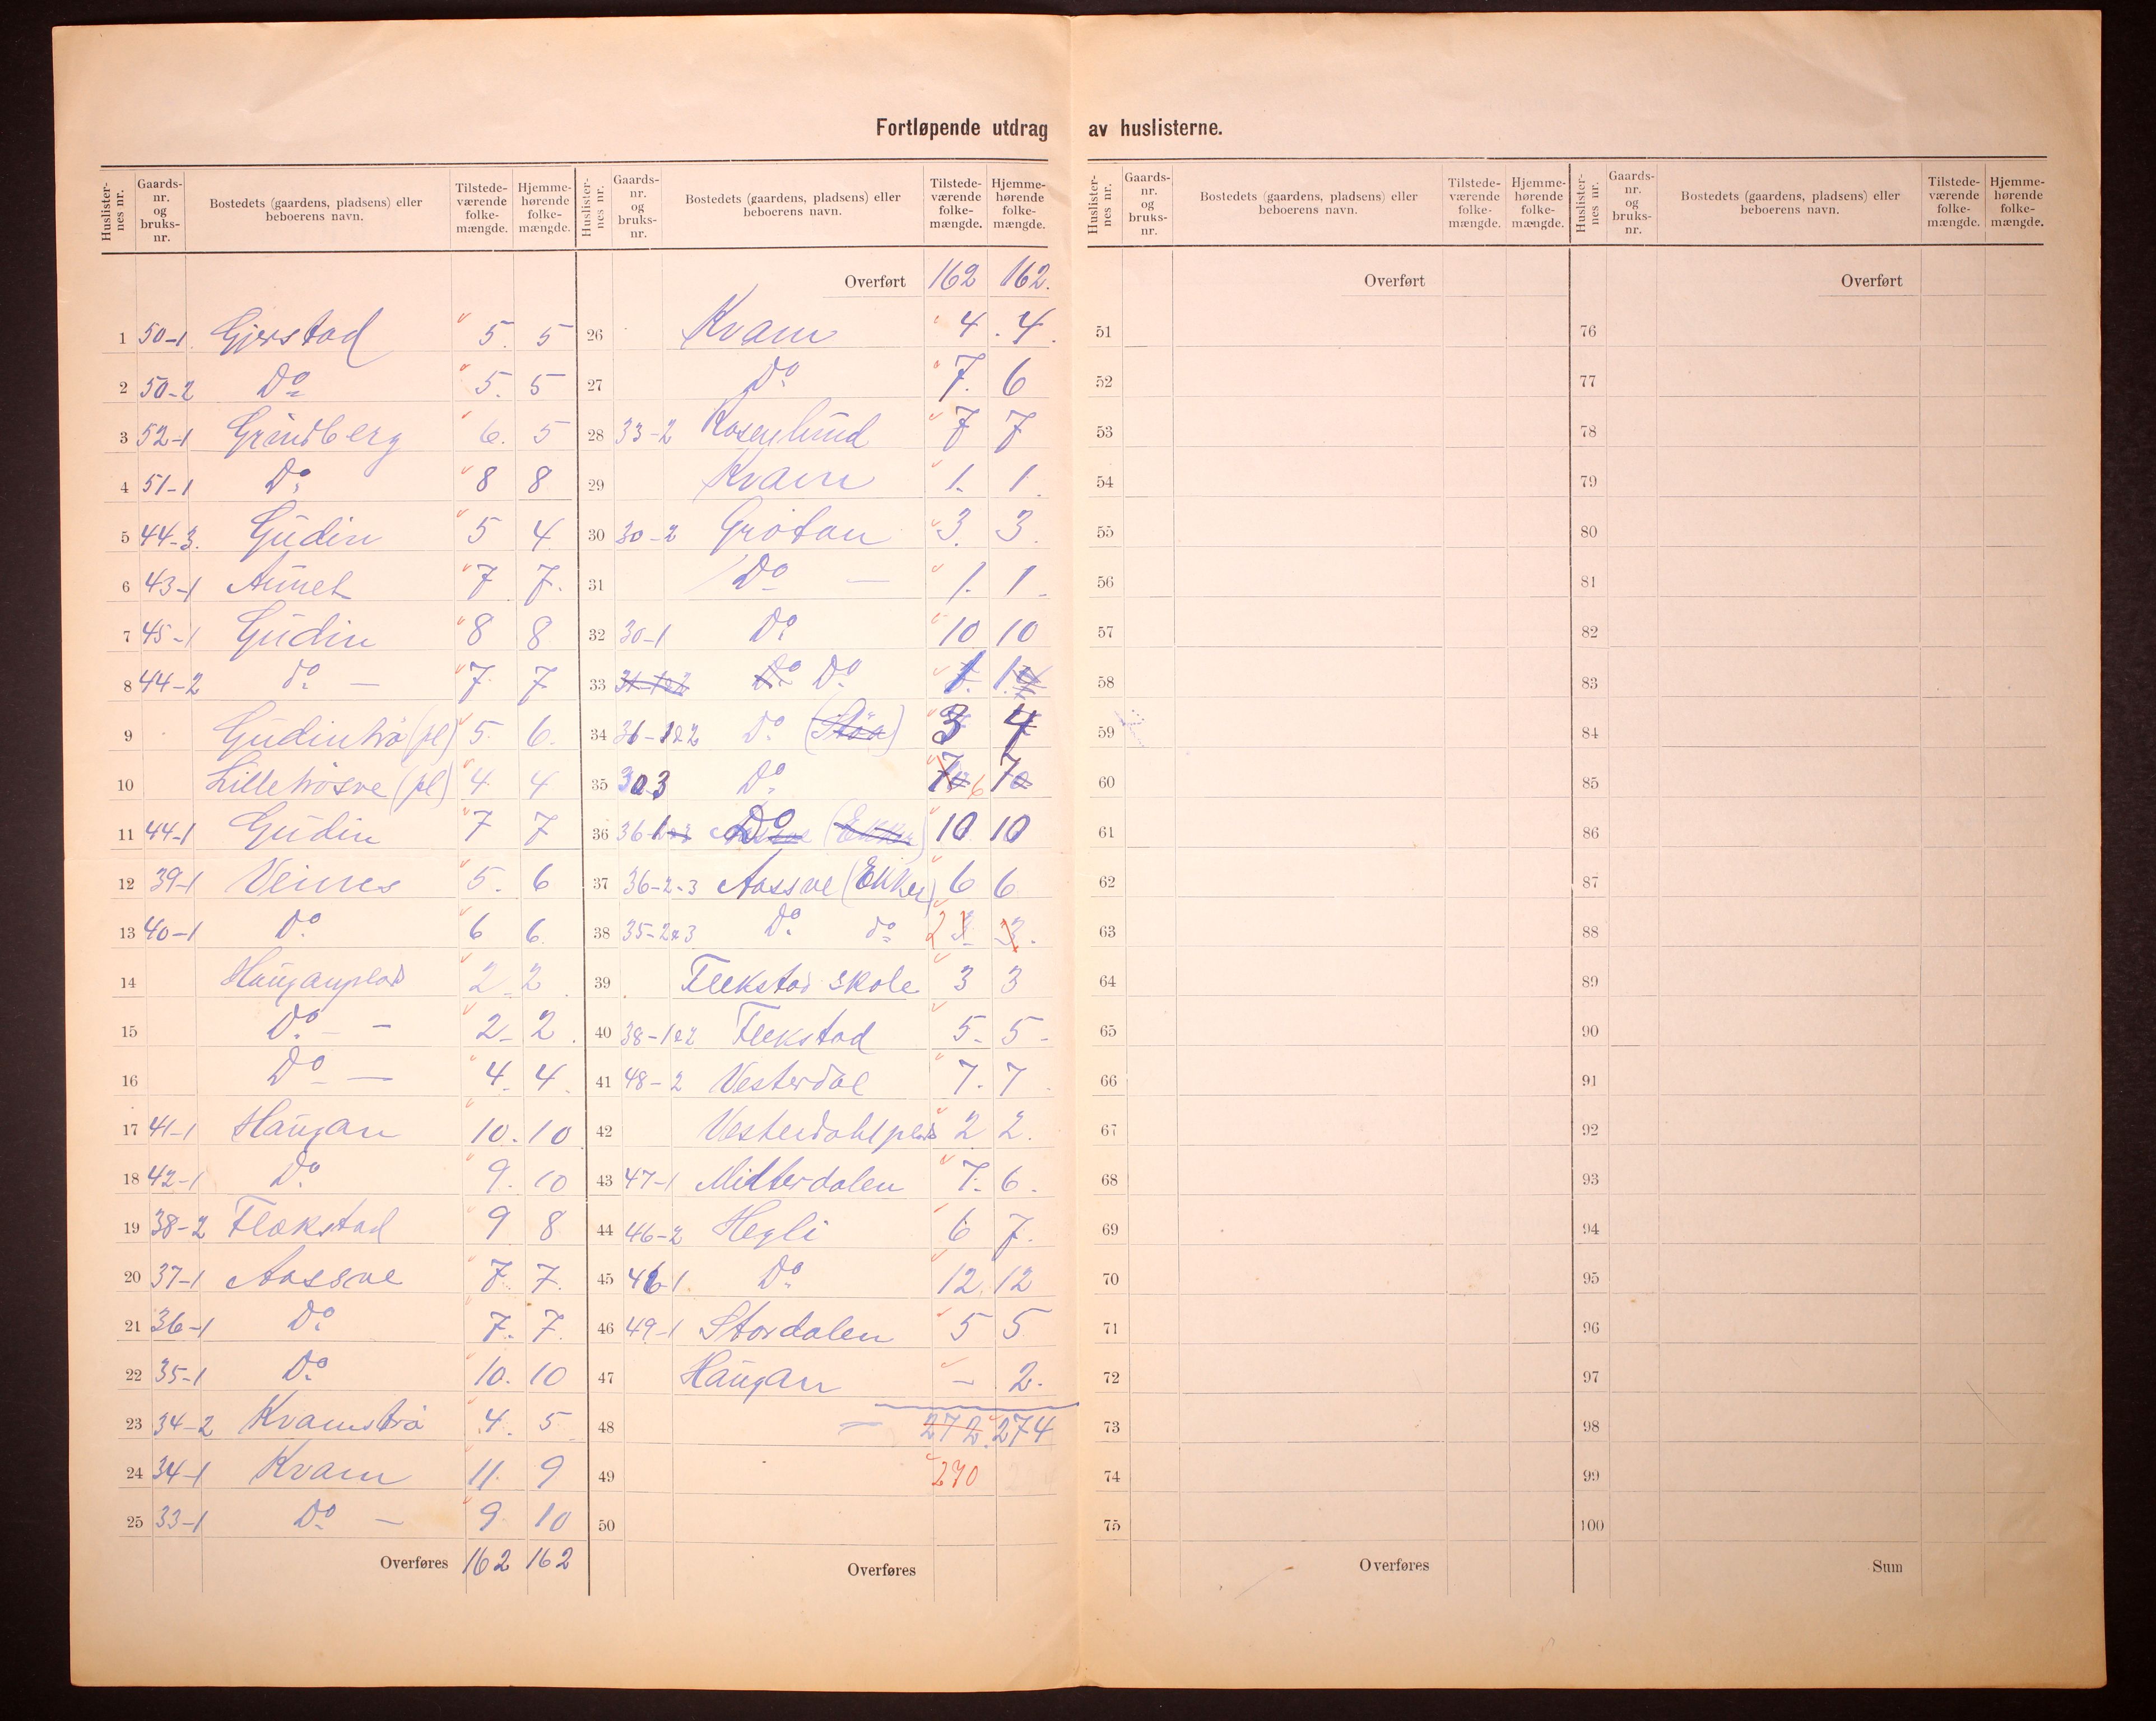 Fortløpende utdrag av huslisterne.
Huslister-nes nr. Gaards-nr. og bruks-nr. Bostedets (gaardens, pladsens) eller beboerens navn. Tilstede-værende folke-mængde. Hjemme-hørende folke-mængde.
1 50-1 Gjerstad 5. 5
2 50-2 Do 5. 5
3 52-1 Grindberg 6. 5
4 51-1 Do 8 8
5 44-3. Gudin 5 4
6 43-1 Aunet 7 7.
7 45-1 Gudin 8 8
8 44-2 do — 7. 7
9 Gudintrø (pl) 5. 6.
10 Lilletrøsve (pl) 4. 4
11 44-1 Gudin 7 7
12 39-1 Veines 5. 6
13 40-1 Do 6 6.
14 Hauganplads 2 2
15 Do — 2 2.
16 Do — 4. 4.
17 41-1 Haugan 10. 10
18 42-1 Do 9. 10
19 38-2 Flekstad 9 8
20 37-1 Aassve 7. 7.
21 36-1 Do 7. 7.
22 35-1 Do 10. 10
23 34-2 Kvamstrø 4. 5
24 34-1 Kvam 11. 9
25 33-1 Do — 9 10
Overføres 162 162
Huslister-nes nr. Gaards-nr. og bruks-nr. Bostedets (gaardens, pladsens) eller beboerens navn. Tilstede-værende folke-mængde. Hjemme-hørende folke-mængde.
Overført 162 162.
26 Kvam 4. 4.
27 Do 7. 6
28 33-2 Rosenlund 7 7
29 Kvam 1. 1.
30 30-2 Grøtan 3. 3.
31 Do — 1. 1
32 30-1 Do 10 10
33 31-1&2 Do Do 1. 1. 4
34 31-1&2 Do (Støa) 3 4
35 30 3 Do 7 6 7
36 36-1 Do (Ekker) 10 10
37 36-2-3 Aassve (Ekker) 6 6
38 35-2&3 Do do 2 3 3.
39 Flekstad skole 3 3
40 38-1&2 Flekstad 5. 5
41 48-2 Vesterdal 7. 7
42 Vesterdahlplads 2 2.
43 47-1 Mitterdalen 7. 6.
44 46-2 Hegli 6 7.
45 46-1 Do 12. 12
46 49-1 Stordalen 5 5
47 Haugan — 2.
48 — 272. 274
49 270
50
Overføres
Huslister-nes nr. Gaards-nr. og bruks-nr. Bostedets (gaardens, pladsens) eller beboerens navn. Tilstede-værende folke-mængde. Hjemme-hørende folke-mængde.
Overført
51
52
53
54
55
56
57
58
59
60
61
62
63
64
65
66
67
68
69
70
71
72
73
74
75
Overføres
Huslister-nes nr. Gaards-nr. og bruks-nr. Bostedets (gaardens, pladsens) eller beboerens navn. Tilstede-værende folke-mængde. Hjemme-hørende folke-mængde.
Overført
76
77
78
79
80
81
82
83
84
85
86
87
88
89
90
91
92
93
94
95
96
97
98
99
100
Sum